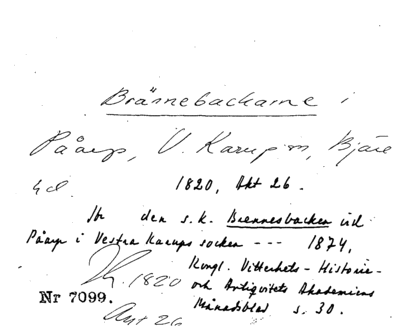 Brännebackarne i
Påarp, V. Karup sn, Bjäre
hd. 1820, Akt 26.
Jfr den s.k. Brennesbacken vid
Påarp i Vestra Karups socken --- 1874,
Kongl. Vitterhets-Historie-
och Antiqvitets Akademiens
Månadsblad s. 30.
1820
Nr 7099.
Akt 26